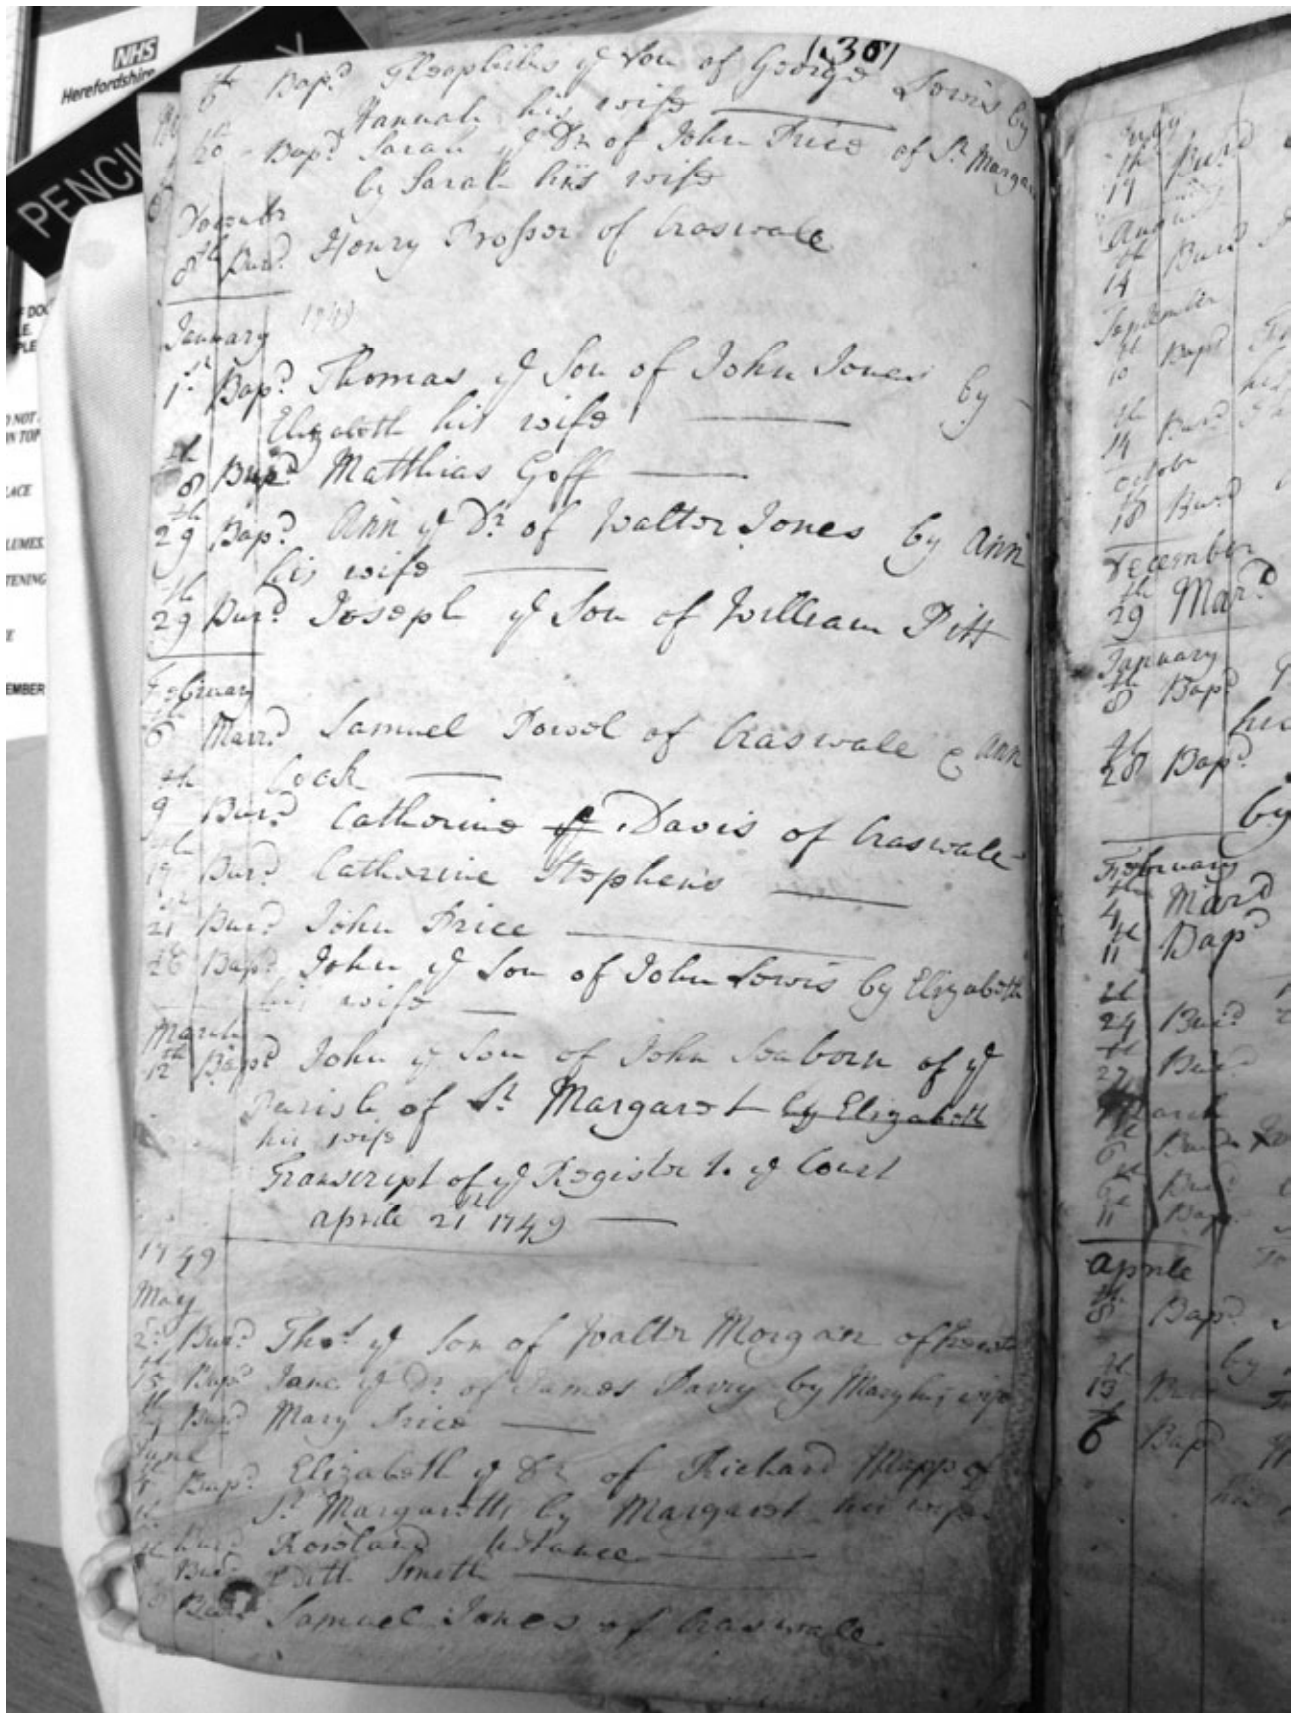 NHS
Herefordshire
PENCIL
(30)
6th Bap.d Theophilus ye Son of George Lewis by
Hannah his wife
20th Bap.d Sarah ye Dr. of John Price of St. Margar
by Sarah his wife
8th Bur.d Henry Prosser of Craswale
January 1749
1st Bap.d Thomas ye Son of John Jones by
Elizabeth his wife
8th Matthias Goff
29th Bap.d Ann ye Dr. of Walter Jones by Ann
his wife
29th Bur.d Joseph ye Son of William Pitt
February
6th Marr.d Samuel Powel of Craswale & Ann
Cook
9th Bur.d Catherine Davis of Craswale
Bur.d Catherine Stephens
21 Bur.d John Price
26 Bap.d John ye Son of John Lewis by Elizabeth
his wife
March
12th Bap.d John ye Son of John Seaborn of ye
Parish of St. Margaret by Elizabeth
his wife
Transcript of ye Register to ye Court
aprile 21st 1749
1749
May
2d Bur.d Thos. ye Son of Walter Morgan of
15th Bap.d Jane ye Dr. of James Parry by Mary his wife
Bur.d Mary Price
June
4th Bap.d Elizabeth ye Dr. of Richard Mapp of
St. Margaretts by Margaret his wife
Bur.d Rowland
Bur.d Edith Smith
Bur.d Samuel Jones of Craswale
July
17th Bur.d
August
14th Bur.d
September
10th Bap.d
his
14th Bur.d
October
18 Bur.d
December
29th Mar.d
January
8th Bap.d
his
28th Bap.d
by
February
4th Mar.d
11th Bap.d
24th Bur.d
27th Bur.d
March
6th Bur.d
Bur.d
11th Bap.d
aprile
8th Bap.d
by
13th
6th Bap.d
his